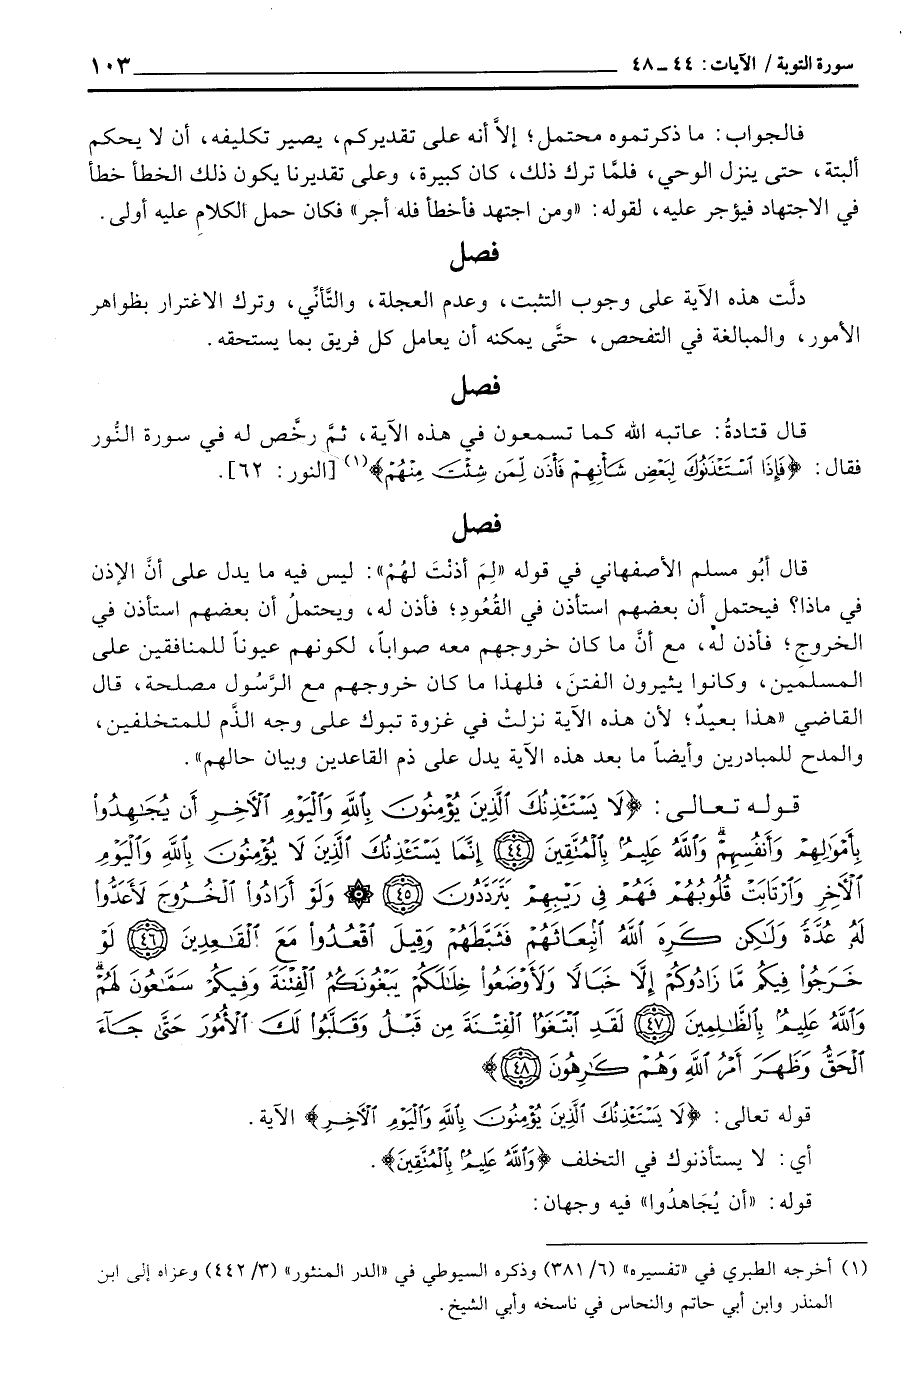 سورة التوبة / الآيات: ٤٤ ـ ٤٨ ١٠٣
فالجواب: ما ذكرتموه محتمل؛ إلاَّ أنه على تقديركم، يصير تكليفه، أن لا يحكم
ألبتة، حتى ينزل الوحي، فلمَّا ترك ذلك، كان كبيرة، وعلى تقديرنا يكون ذلك الخطأ خطأ
في الاجتهاد فيؤجر عليه، لقوله: «ومن اجتهد فأخطأ فله أجر» فكان حمل الكلامِ عليه أولى.
فصل
دلَّت هذه الآية على وجوب التثبت، وعدم العجلة، والتَّأنِّي، وترك الاغترار بظواهر
الأمور، والمبالغة في التفحص، حتَّى يمكنه أن يعامل كل فريق بما يستحقه.
فصل
قال قتادةُ: عاتبه الله كما تسمعون في هذه الآية، ثمَّ رخَّص له في سورة النُّور
فقال: ﴿فَإِذَا ٱسْتَـْٔذَنُوكَ لِبَعْضِ شَأْنِهِمْ فَأْذَن لِّمَن شِئْتَ مِنْهُمْ﴾(١) [النور: ٦٢].
فصل
قال أبُو مسلم الأصفهاني في قوله «لِمَ أذنْتَ لهُمْ»: ليس فيه ما يدل على أنَّ الإذن
في ماذا؟ فيحتمل أن بعضهم استأذن في القُعُودِ؛ فأذن له، ويحتملُ أن بعضهم استأذن في
الخروج؛ فأذن له، مع أنَّ ما كان خروجهم معه صواباً، لكونهم عيوناً للمنافقين على
المسلمين، وكانوا يثيرون الفتنَ، فلهذا ما كان خروجهم مع الرَّسُول مصلحة، قال
القاضي «هذا بعيدٌ؛ لأن هذه الآية نزلتْ في غزوة تبوك على وجه الذَّم للمتخلفين،
والمدح للمبادرين وأيضاً ما بعد هذه الآية يدل على ذم القاعدين وبيان حالهم».
قوله تعالى: ﴿لَا يَسْتَـْٔذِنُكَ ٱلَّذِينَ يُؤْمِنُونَ بِٱللَّهِ وَٱلْيَوْمِ ٱلْأَخِرِ أَن يُجَـٰهِدُوا۟
بِأَمْوَٰلِهِمْ وَأَنفُسِهِمْ ۗ وَٱللَّهُ عَلِيمٌۢ بِٱلْمُنَّقِينَ ٤٤ إِنَّمَا يَسْتَـْٔذِنُكَ ٱلَّذِينَ لَا يُؤْمِنُونَ بِٱللَّهِ وَٱلْيَوْمِ
ٱلْأَخِرِ وَٱرْتَابَتْ قُلُوبُهُمْ فَهُمْ فِى رَيْبِهِمْ يَتَرَدَّدُونَ ٤٥ ۞ وَلَوْ أَرَادُوا۟ ٱلْخُرُوجَ لَأَعَدُّوا۟
لَهُۥ عُدَّةً وَلَـٰكِن كَرِهَ ٱللَّهُ ٱنۢبِعَاثَهُمْ فَثَبَّطَهُمْ وَقِيلَ ٱقْعُدُوا۟ مَعَ ٱلْقَـٰعِدِينَ ٤٦ لَوْ
خَرَجُوا۟ فِيكُم مَّا زَادُوكُمْ إِلَّا خَبَالًا وَلَأَوْضَعُوا۟ خِلَـٰلَكُمْ يَبْغُونَكُمُ ٱلْفِتْنَةَ وَفِيكُمْ سَمَّـٰعُونَ لَهُمْ ۗ
وَٱللَّهُ عَلِيمٌۢ بِٱلظَّـٰلِمِينَ ٤٧ لَقَدِ ٱبْتَغَوُا۟ ٱلْفِتْنَةَ مِن قَبْلُ وَقَلَّبُوا۟ لَكَ ٱلْأُمُورَ حَتَّىٰ جَآءَ
ٱلْحَقُّ وَظَهَرَ أَمْرُ ٱللَّهِ وَهُمْ كَـٰرِهُونَ ٤٨﴾
قوله تعالى: ﴿لَا يَسْتَـْٔذِنُكَ ٱلَّذِينَ يُؤْمِنُونَ بِٱللَّهِ وَٱلْيَوْمِ ٱلْأَخِرِ﴾ الآية.
أي: لا يستأذنوك في التخلف ﴿وَٱللَّهُ عَلِيمٌۢ بِٱلْمُنَّقِينَ﴾.
قوله: «أن يُجَاهدُوا» فيه وجهان:
(١) أخرجه الطبري في «تفسيره» (٦/ ٣٨١) وذكره السيوطي في «الدر المنثور» (٣/ ٤٤٢) وعزاه إلى ابن
المنذر وابن أبي حاتم والنحاس في ناسخه وأبي الشيخ.